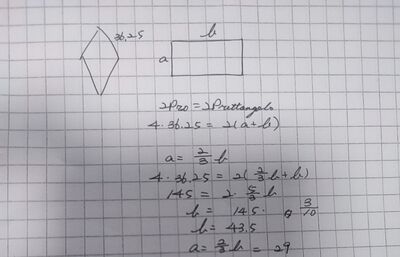 36,25
b
a
2Pro = 2Prettangolo
4 · 36.25 = 2(a+b)
a = 2/3 b
4 · 36.25 = 2(2/3 b + b)
145 = 2 · 5/3 b
b = 145 · 3/10
b = 43.5
a = 2/3 b = 29